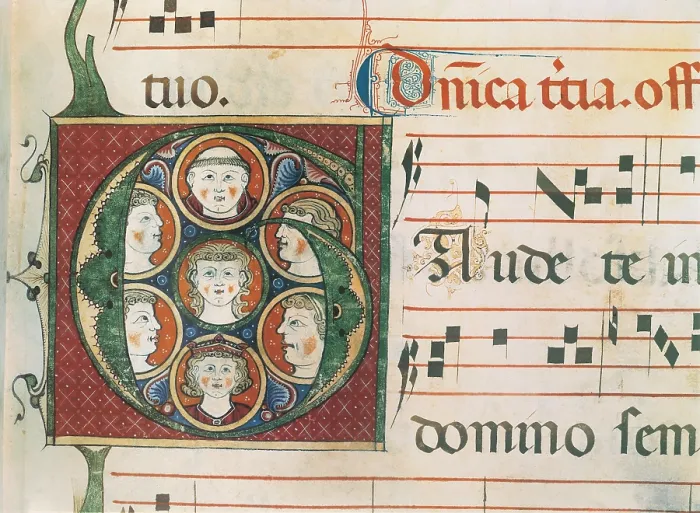 tuo.
Dn̄ica t̄cia. off
GAude te in
domino sem